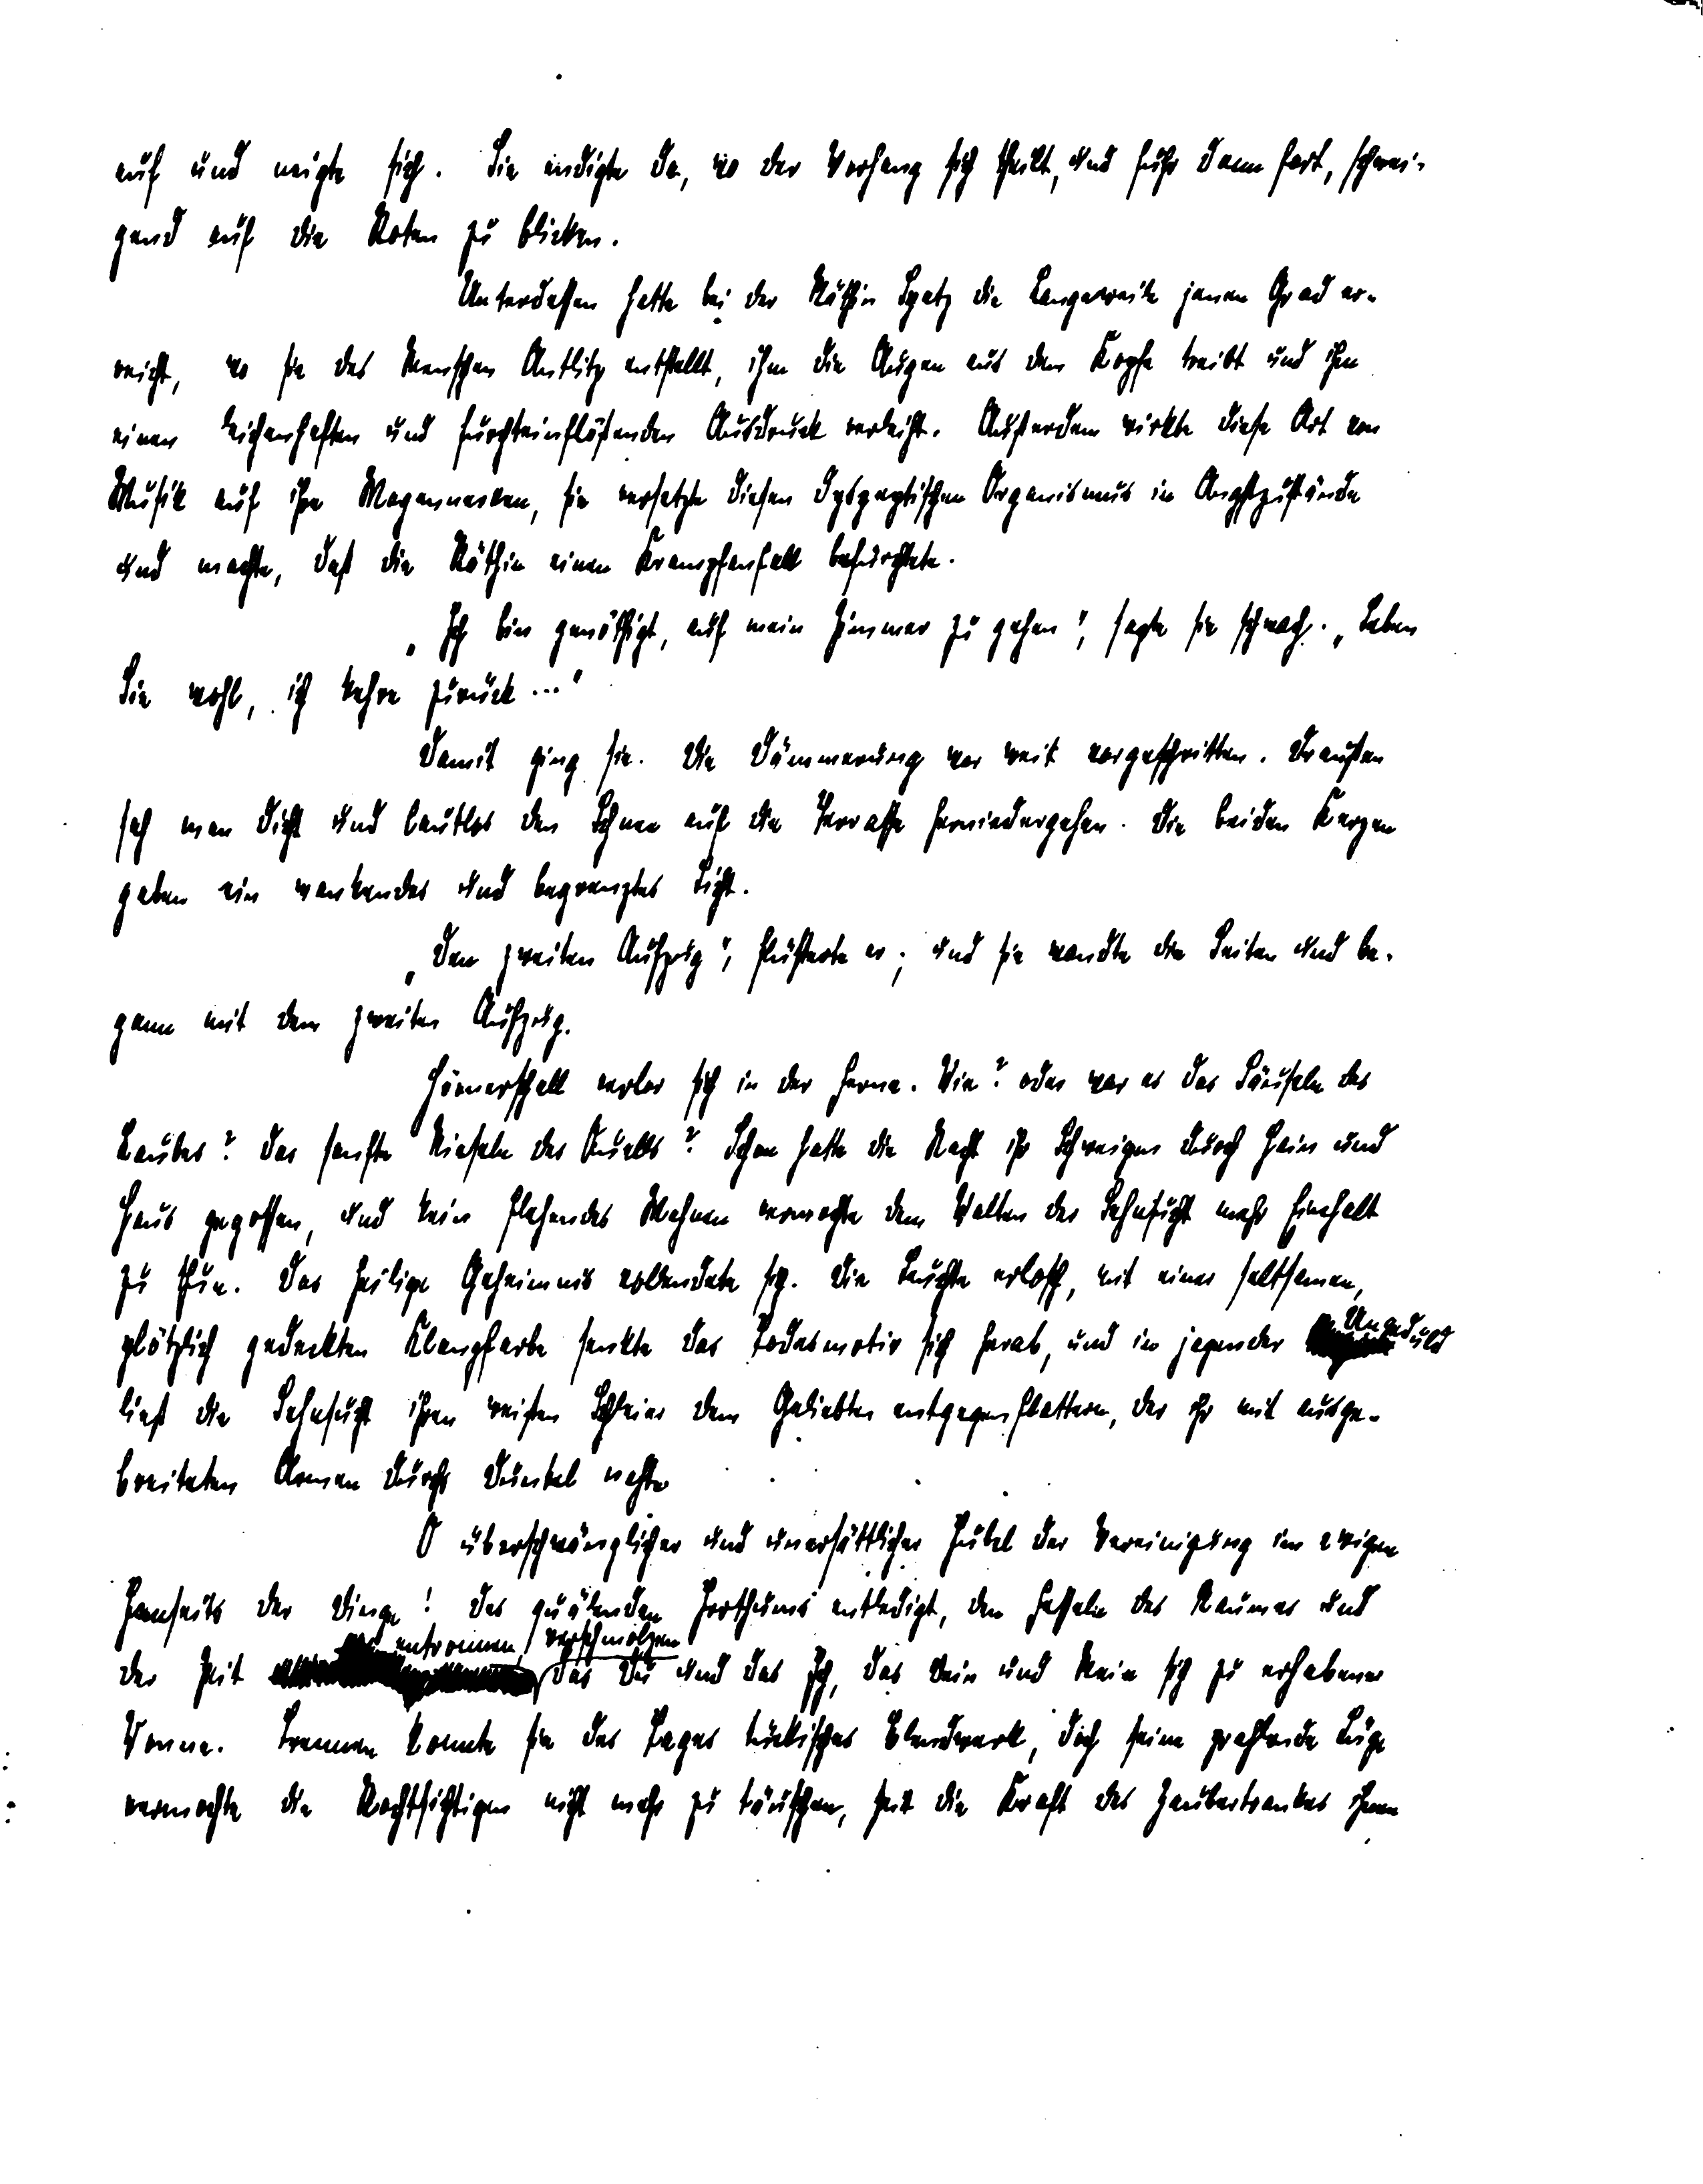 auf und neigte sich. Sie endigte da, wo der Vorhang sich theilt, und fuhr dann fort, schwei-
gend auf die Noten zu blicken.
Unterdessen hatte bei der Räthin Spatz die Langeweile jenen Grad er-
reicht, wo sie des Menschen Antlitz entstellt, ihm die Augen aus dem Kopfe treibt und ihm
einen leichenhaften und furchteinflößenden Ausdruck verleiht. Außerdem wirkte diese Art von
Musik auf ihre Magennerven, sie versetzte diesen dyspeptischen Organismus in Angstzustände
und machte, daß die Räthin einen Krampfanfall befürchtete.
„Ich bin genöthigt, auf mein Zimmer zu gehen", sagte sie schwach. „Leben
Sie wohl, ich kehre zurück ..."
Damit ging sie. Die Dämmerung war weit vorgeschritten. Draußen
sah man dicht und lautlos den Schnee auf die Terrasse herniedergehen. Die beiden Kerzen
gaben ein wankendes und begrenztes Licht.
„Den zweiten Aufzug", flüsterte er; und sie wandte die Seiten und be-
gann mit dem zweiten Aufzug.
Hörnerschall verlor sich in der Ferne. Wie? oder war es das Säuseln des
Laubes? Das sanfte Rieseln des Quells? Schon hatte die Nacht ihr Schweigen durch Hain und
Haus gegossen, und kein flehendes Mahnen vermochte dem Walten der Sehnsucht mehr Einhalt
zu thun. Das heilige Geheimnis vollendete sich. Die Leuchte erlosch, mit einer seltsamen,
plötzlich gedeckten Klangfarbe senkte das Todesmotiv sich herab, und in jagender Ungeduld
ließ die Sehnsucht ihren weißen Schleier dem Geliebten entgegenflattern, der ihr mit ausge-
breiteten Armen durchs Dunkel nahte
O überschwänglicher und unersättlicher Jubel der Vereinigung im ewigen
Jenseits der Dinge! Des quälenden Irrthums entledigt, den Fesseln des Raumes und
der Zeit entronnen, verschmolzen das Du und das Ich, das Dein und Mein sich zu erhabener
Wonne. Trennen konnte sie des Tages tückisches Blendwerk, doch seine prahlende Lüge
vermochte die Nachtsichtigen nicht mehr zu täuschen, seit die Kraft des Zaubertrankes ihnen